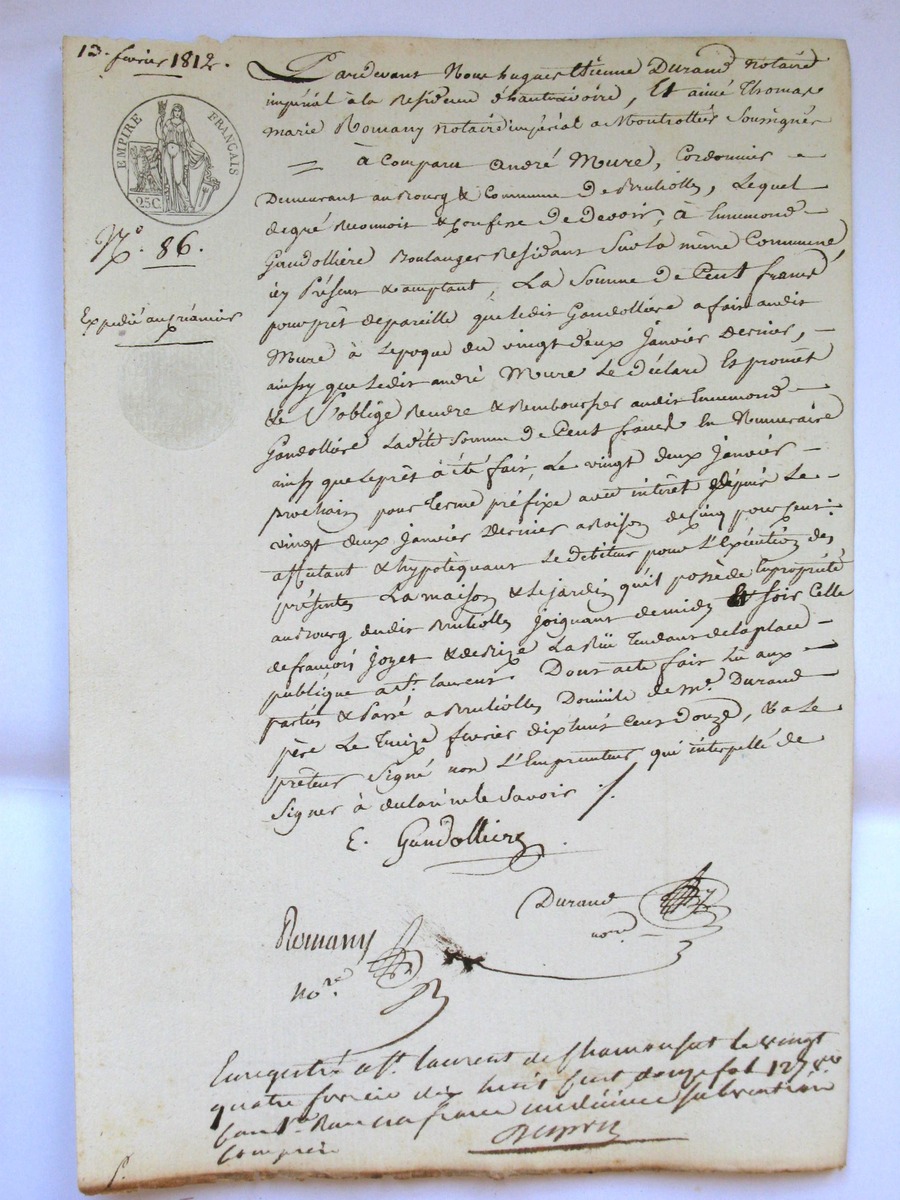 13. fevrier 1812.
EMPIRE FRANÇAIS
25C.
N.º 86.
Expedié au créancier
Pardevant Nous hugues Etienne Durand Notaire
impérial à la Residence d'hauterivoire, Et aimé thomas
marie Romany Notaire impérial a Montrottier Soussignés
= à Comparu André Mure, Cordonnier
Demeurant au Bourg & Commune de Brullioles, Lequel
degré Reconnoit & Confesse de devoir, à Ennemond
Gaudollière Boulanger Residant Sur la même Commune,
icy Présent & acceptant, La Somme de Cent francs
pour prêt de pareille que ledit Gaudollière a fait audit
Mure à Lépoque du vingt deux Janvier Dernier,
ainsy que Ledit andré Mure Le déclare Et promet
& S'oblige Rendre & Rembourser audit Ennemond
Gaudollière Ladite Somme de Cent francs En Numeraire
ainsy que le prêt à été fait, Le vingt deux Janvier
prochain pour terme préfixe avec intérêt depuis Le
vingt deux Janvier Dernier a Raison de Cinq pour Cent
affectant & hypotèquant Le debiteur pour L'Exécution des
présentes La maison & Le jardin qu'il possède En propriété
au Bourg dudit Brullioles Joignant de midy Et Soir Celle
de françois Joyet & de bize La Rüe Tendant de la place
publique a St. Laurent. Dont acte fait Lu aux
parties & Passé a Brullioles Domicile de Me. Durand
père Le treize fevrier dix huit Cent Douze, & a Le
prêteur Signé non L'Emprunteur qui interpellé de
Signer à declaré ne le Savoir ./.
E. Gaudollière
Durand
nore
Romany
No.re
Enregistré a St. laurent de Chamousset le vingt
quatre fevrier dix huit Cent douze fol 127
Reçu un franc dix centimes subvention
Comprise